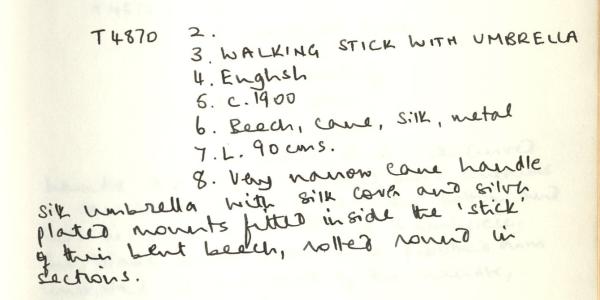 T4870 2.
3. WALKING STICK WITH UMBRELLA
4. English
5. c.1900
6. Beech, cane, silk, metal
7. L. 90 cms.
8. Very narrow cane handle
silk umbrella with silk cover and silver
plated mounts fitted inside the 'stick'
of thin bent beech, rolled round in
sections.